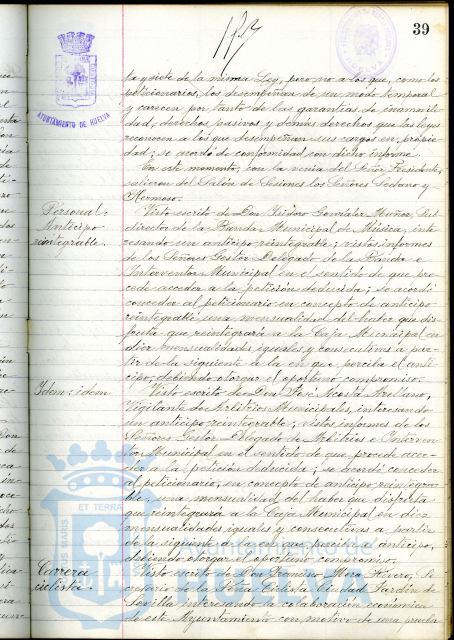 39
AYUNTAMIENTO DE HUELVA
ta y siete de la misma Ley, pero no a los que, como los
peticionarios, los desempeñan de un modo temporal
y carecen por tanto de las garantías de inamovili-
dad, derechos pasivos y demás derechos que las leyes
reconocen a los que desempeñan sus cargos en propie-
dad; se acordó de conformidad con dicho informe.
En este momento, con la venia del Señor Presidente,
salieron del Salón de Sesiones los Señores Sedano y
Hermoso.
Personal:
Anticipo
reintegrable.
Visto escrito de Don Isidoro González Muñoz, Sub-
director de la Banda Municipal de Música, inte-
resando un anticipo reintegrable; vistos informes
de los Señores Gestor Delegado de la Banda e
Interventor Municipal en el sentido de que pro-
cede acceder a la petición deducida; se acordó
conceder al peticionario en concepto de anticipo
reintegrable una mensualidad del haber que dis-
fruta que reintegrará a la Caja Municipal en
diez mensualidades iguales y consecutivas a par-
tir de la siguiente a la en que perciba el anti-
cipo, debiendo otorgar el oportuno compromiso.
Idem: idem
Visto escrito de Don José Acosta Arellano,
Vigilante de Arbitrios Municipales, interesando
un anticipo reintegrable; vistos informes de los
Señores Gestor Delegado de Arbitrios e Interven-
tor Municipal en el sentido de que procede acce-
der a la petición deducida; se acordó conceder
al peticionario, en concepto de anticipo reintegra-
ble, una mensualidad del haber que disfruta
que reintegrará a la Caja Municipal en diez
mensualidades iguales y consecutivas a partir
de la siguiente a la en que perciba el anticipo,
debiendo otorgar el oportuno compromiso.
Carrera
ciclista.
Visto escrito de Don Francisco Mora Rivero, Se-
cretario de la Peña Ciclista Ciudad Jardín de
Sevilla interesando la colaboración económica
de este Ayuntamiento con motivo de una prueba
ET TERRA
Ayuntamiento de